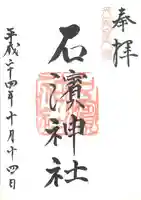 奉拝
石濱神社
平成二十四年十月十四日